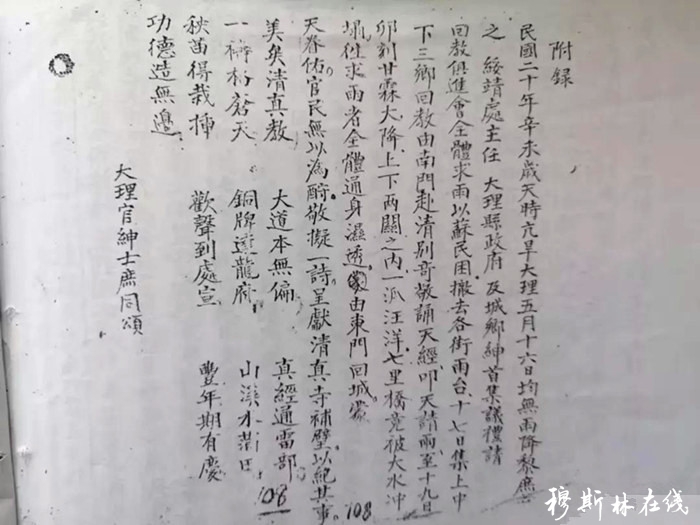 附录
民國二十年辛未歲天時亢旱大理五月十六日均無雨降黎庶
之 綏靖處主任 大理縣政府及城鄉紳首集議禮請
回教俱進會全體求雨以蘇民困撤去各街雨台十七日集上中
下三鄉回教由南門赴清别奇敬誦天經叩天請雨至十九日
卯刻甘霖大降上下两關之内一派汪洋七里橋竟被大水冲
塌徃求雨者全體通身濕透由東門回城蒙
天眷佑官民無以為酧敬擬一詩呈獻清真寺補壁以紀其事 108
美矣清真教 大道本無偏 真經通雷部
一瓣格蒼天 銅牌達龍府 山溪水 108
秧苗得栽揷 歡聲到處宣 豐年期有慶
功德造無邊
大理官紳士庶同頌
穆斯林在线